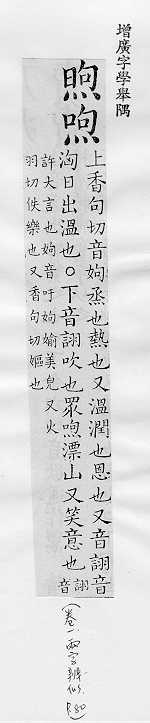 增廣字學舉隅
煦喣
上香句切音姁烝也熱也又溫潤也恩也又音詡音
洵日出溫也○下音詡吹也眾喣漂山又笑意也
詡
音
許大言也姁音吁姁媮美皃 又火
羽切佚樂也又香句切嫗也
(卷一兩字辨似. P.80)